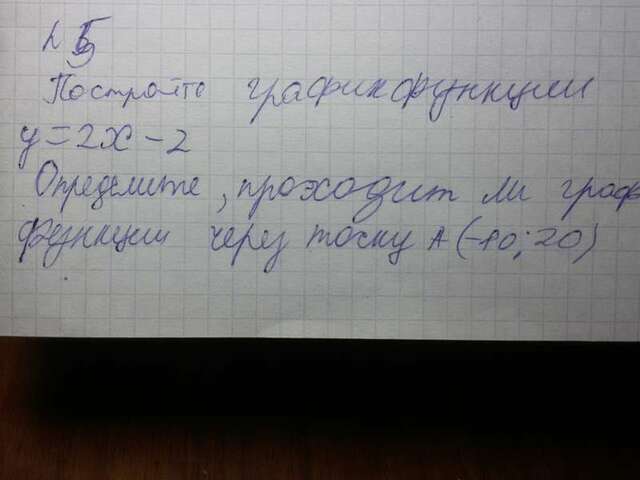 Постройте график функции
y=2x-2
Определите, проходит ли граф
функции через точку A(-10;20)